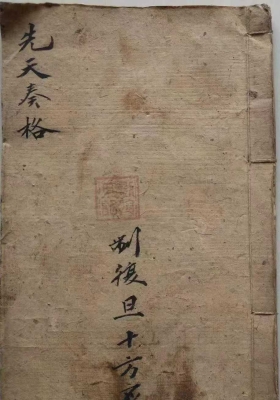 先天奏格
制復旦十方